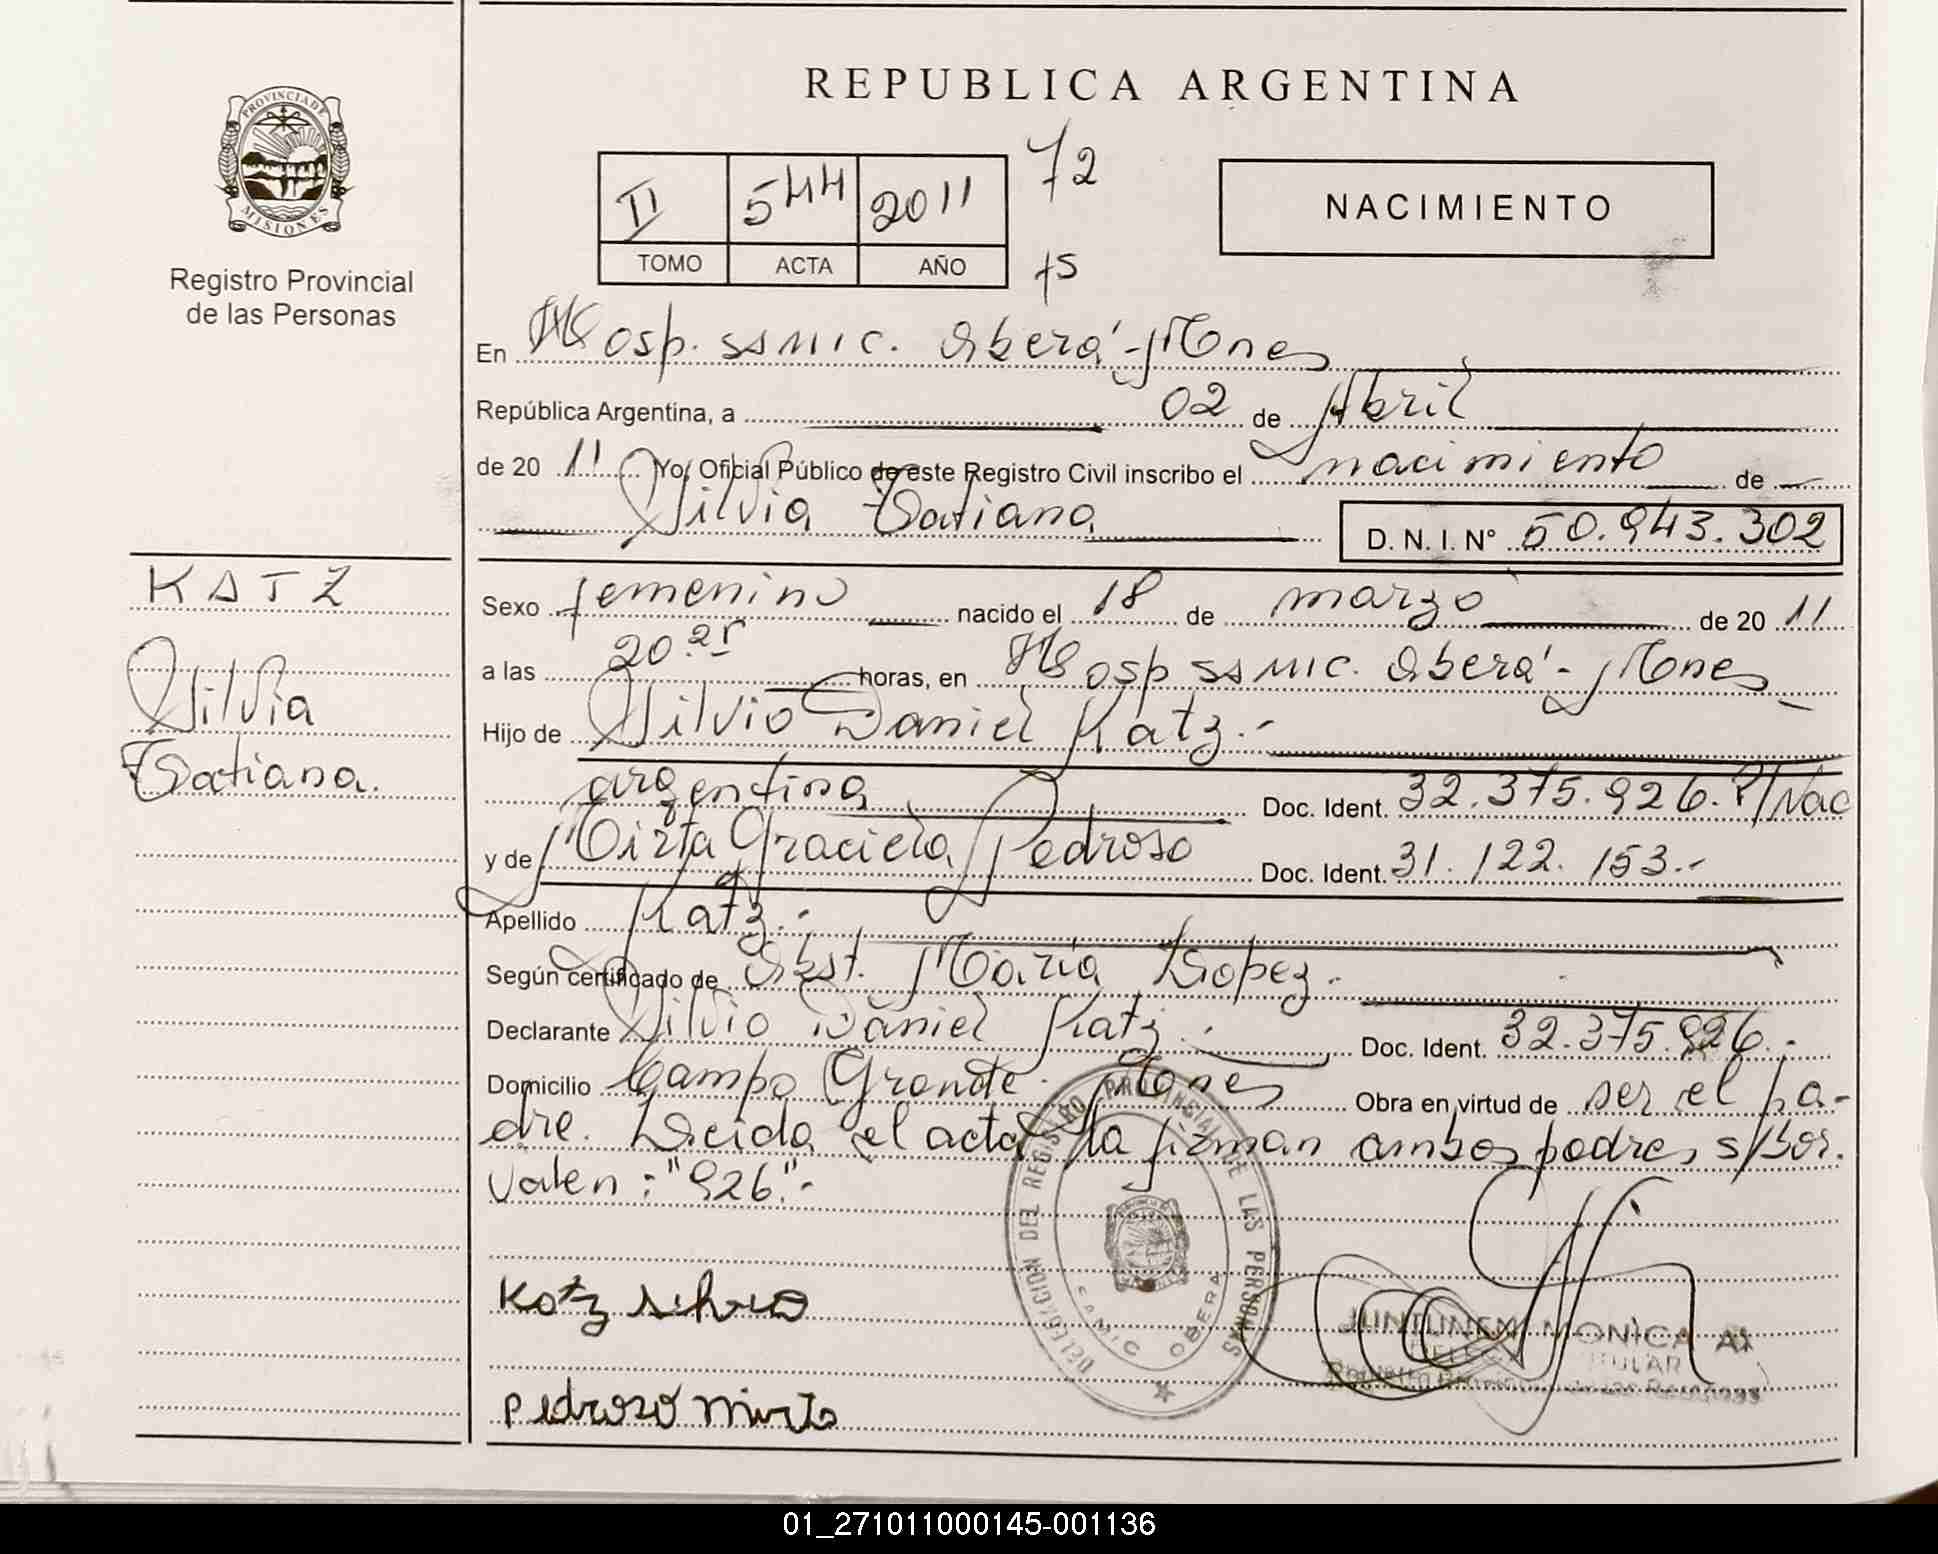 REPUBLICA ARGENTINA
PROVINCIA DE
MISIONES
Registro Provincial
de las Personas
II 544 2011
TOMO ACTA AÑO
72
75
NACIMIENTO
En Hosp. SSMIC. Oberá - Mones
República Argentina, a 02 de Abril
de 20 11 Yo, Oficial Público de este Registro Civil inscribo el nacimiento de
Silvia Tatiana D. N. I. N° 50.943.302
KATZ
Silvia
Tatiana.
Sexo femenino nacido el 18 de marzo de 20 11
a las 20.25 horas, en Hosp SSMIC. Oberá - Mones
Hijo de Silvio Daniel Katz.-
argentina Doc. Ident. 32.375.926. P/Nac
y de Mirta Graciela Pedroso Doc. Ident. 31.122.153.-
Apellido Katz.-
Según certificado de Obst. María Lopez.
Declarante Silvio Daniel Katz.- Doc. Ident. 32.375.926.-
Domicilio Campo Grande. Mones Obra en virtud de ser el pa-
dre. Leída el acta la firman ambos padres s/bor.
Valen: "926".-
Katz silvio
Pedrozo Mirta
DELEGACION DEL REGISTRO PROVINCIAL DE LAS PERSONAS
SAMIC OBERA
JUNTUNEN MONICA A
TITULAR
01_271011000145-001136